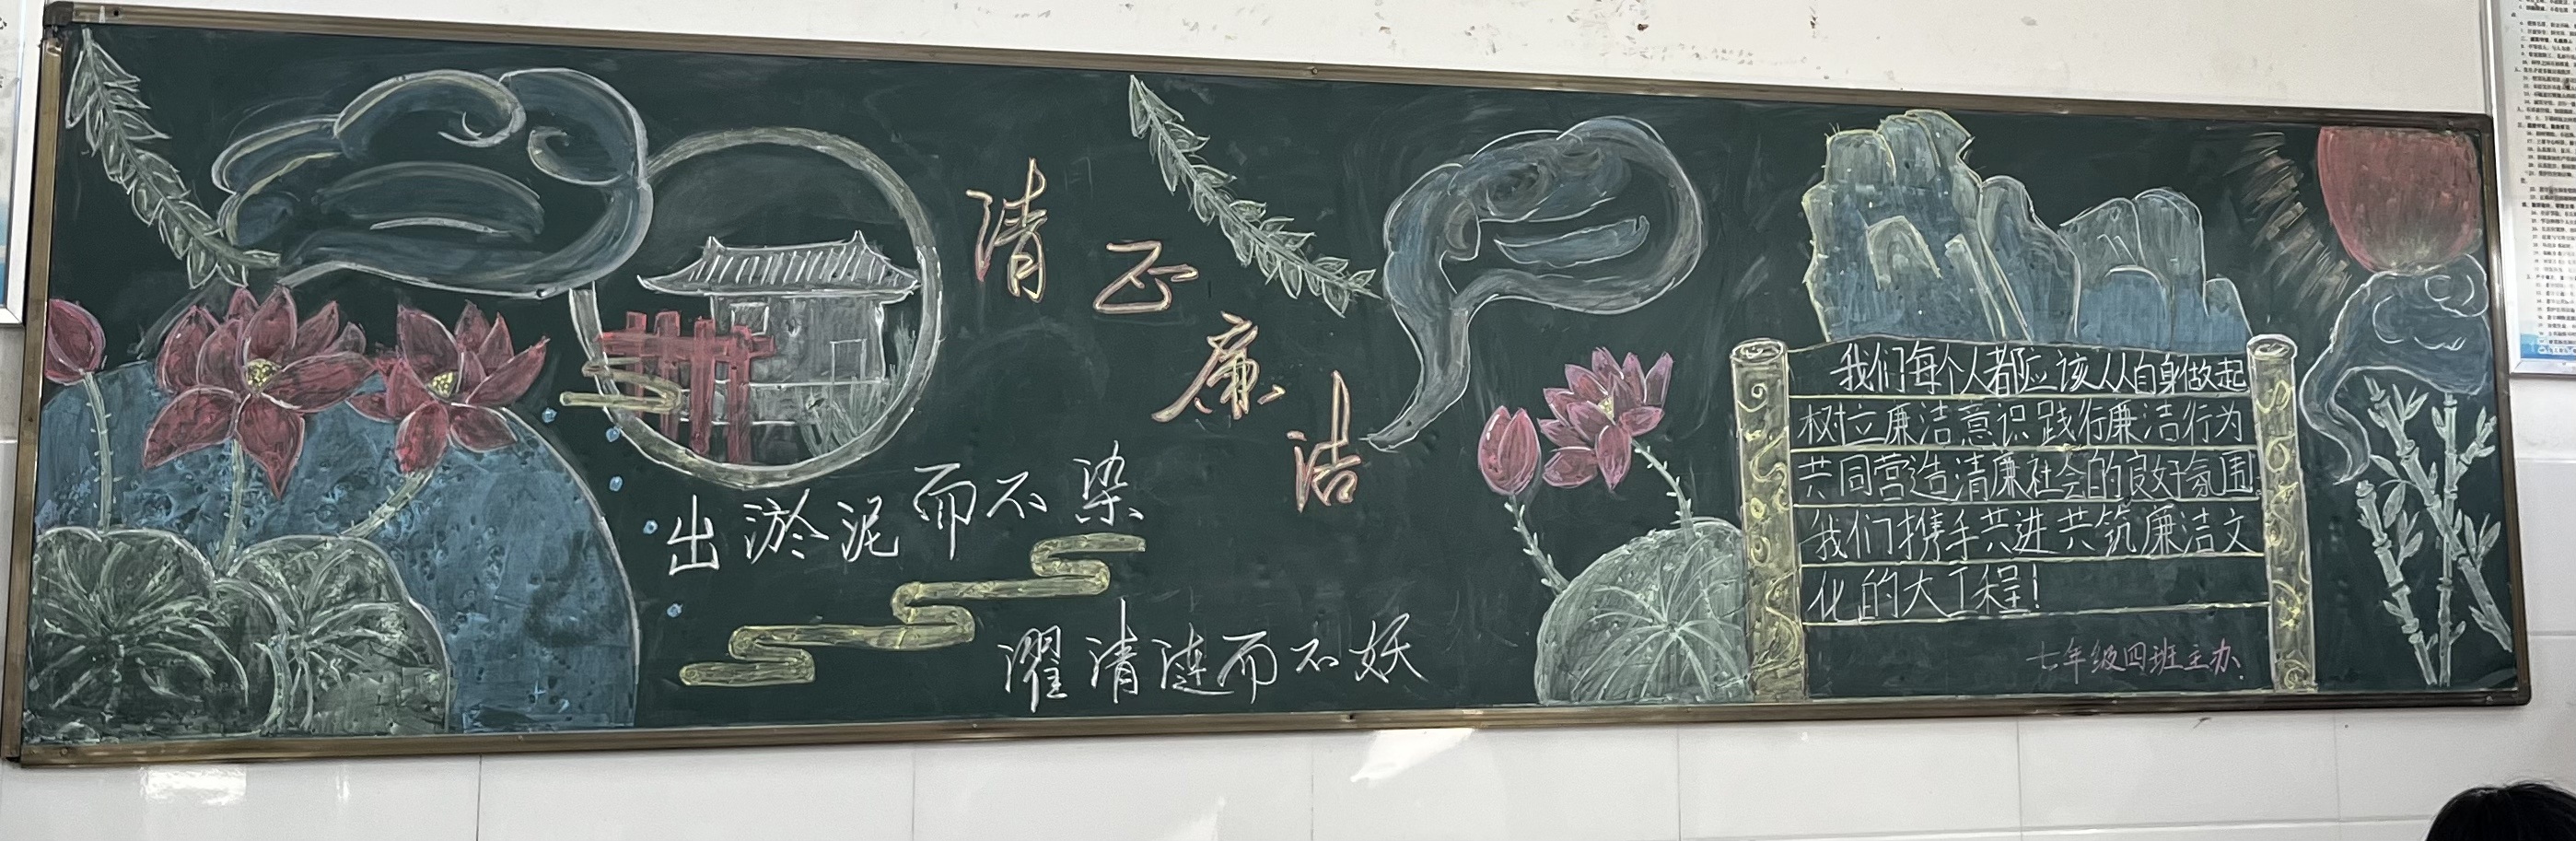 清正廉洁
出淤泥而不染
濯清涟而不妖
我们每个人都应该从自身做起
树立廉洁意识践行廉洁行为
共同营造清廉社会的良好氛围
我们携手共进共筑廉洁文
化的大工程！
七年级四班主办